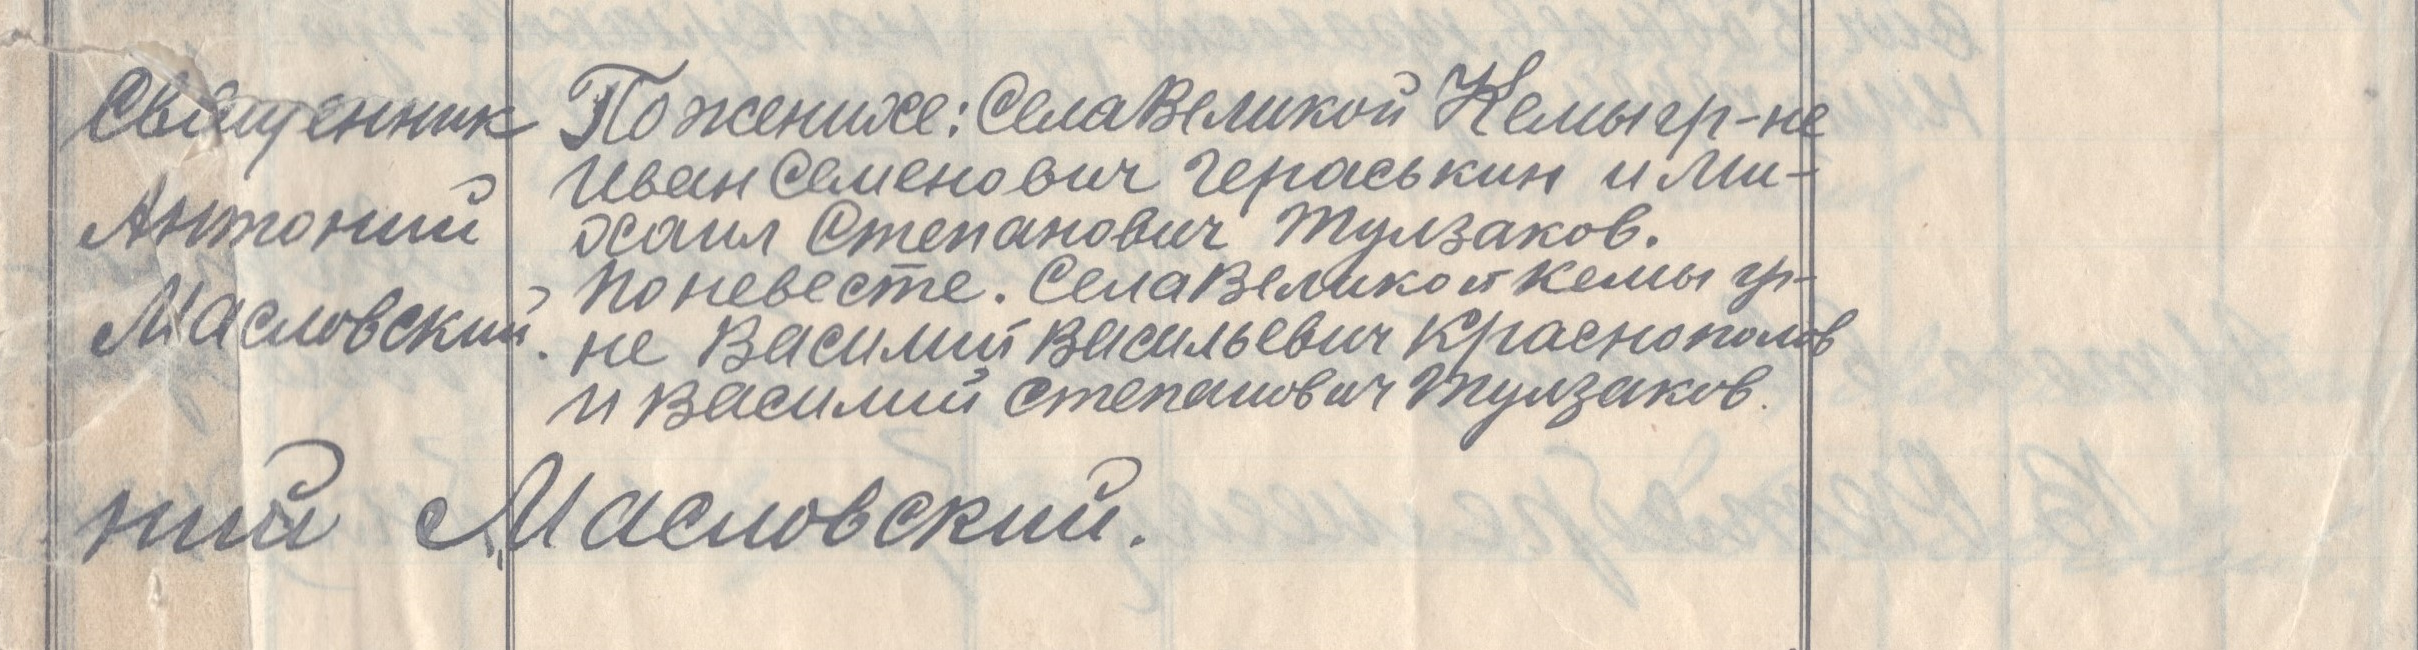 Священник
Антоний
Масловский.
По женихе: Села Великой Кемы гр-не
Иван Семенович Гераськин и Ми-
хаил Степанович Тулзаков.
По невесте. Села Великой Кемы гр-
не Василий Васильевич Краснополов
и Василий Степанович Тулзаков.
ний Масловский.